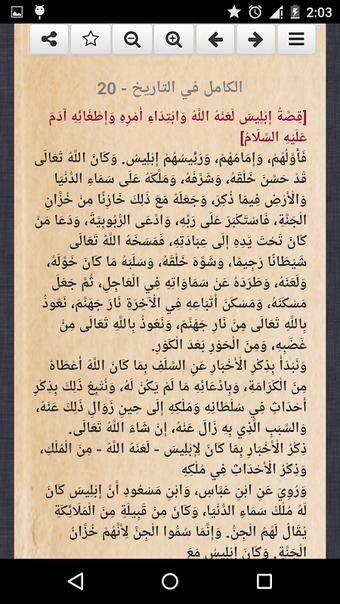 2:03
الكامل في التاريخ - 20
[قِصَّةُ إِبْلِيسَ لَعَنَهُ اللَّهُ وَابْتِدَاءِ أَمْرِهِ وَإِطْغَائِهِ آدَمَ
عَلَيْهِ السَّلَامُ]
فَأَوَّلُهُمْ، وَإِمَامُهُمْ، وَرَئِيسُهُمْ إِبْلِيسُ. وَكَانَ اللَّهُ تَعَالَى
قَدْ حَسَّنَ خَلْقَهُ، وَشَرَّفَهُ، وَمَلَّكَهُ عَلَى سَمَاءِ الدُّنْيَا
وَالْأَرْضِ فِيمَا ذُكِرَ، وَجَعَلَهُ مَعَ ذَلِكَ خَازِنًا مِنْ خُزَّانِ
الْجَنَّةِ، فَاسْتَكْبَرَ عَلَى رَبِّهِ، وَادَّعَى الرُّبُوبِيَّةَ، وَدَعَا مَنْ
كَانَ تَحْتَ يَدِهِ إِلَى عِبَادَتِهِ، فَمَسَخَهُ اللَّهُ تَعَالَى
شَيْطَانًا رَجِيمًا، وَشَوَّهَ خَلْقَهُ، وَسَلَبَهُ مَا كَانَ خَوَّلَهُ،
وَلَعَنَهُ، وَطَرَدَهُ عَنْ سَمَاوَاتِهِ فِي الْعَاجِلِ، ثُمَّ جَعَلَ
مَسْكَنَهُ، وَمَسْكَنَ أَتْبَاعِهِ فِي الْآخِرَةِ نَارَ جَهَنَّمَ، نَعُوذُ
بِاللَّهِ تَعَالَى مِنْ نَارِ جَهَنَّمَ، وَنَعُوذُ بِاللَّهِ تَعَالَى مِنْ
غَضَبِهِ، وَمِنَ الْحَوْرِ بَعْدَ الْكَوْرِ.
وَنَبْدَأُ بِذِكْرِ الْأَخْبَارِ عَنِ السَّلَفِ بِمَا كَانَ اللَّهُ أَعْطَاهُ
مِنَ الْكَرَامَةِ، وَبِادِّعَائِهِ مَا لَمْ يَكُنْ لَهُ، وَنُتْبِعُ ذَلِكَ بِذِكْرِ
أَحْدَاثٍ فِي سُلْطَانِهِ وَمُلْكِهِ إِلَى حِينِ زَوَالِ ذَلِكَ عَنْهُ،
وَالسَّبَبِ الَّذِي بِهِ زَالَ عَنْهُ، إِنْ شَاءَ اللَّهُ تَعَالَى.
ذِكْرُ الْأَخْبَارِ بِمَا كَانَ لِإِبْلِيسَ - لَعَنَهُ اللَّهُ - مِنَ الْمُلْكِ،
وَذِكْرُ الْأَحْدَاثِ فِي مُلْكِهِ
وَرُوِيَ عَنِ ابْنِ عَبَّاسٍ، وَابْنِ مَسْعُودٍ أَنَّ إِبْلِيسَ كَانَ
لَهُ مُلْكُ سَمَاءِ الدُّنْيَا، وَكَانَ مِنْ قَبِيلَةٍ مِنَ الْمَلَائِكَةِ
يُقَالُ لَهُمُ الْجِنُّ. وَإِنَّمَا سُمُّوا الْجِنَّ لِأَنَّهُمْ خُزَّانُ
الْجَنَّةِ. وَكَانَ إِبْلِيسُ مَعَ